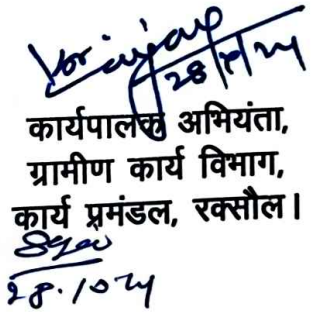 28/10/24
कार्यपालक अभियंता,
ग्रामीण कार्य विभाग,
कार्य प्रमंडल, रक्सौल।
28.10.24